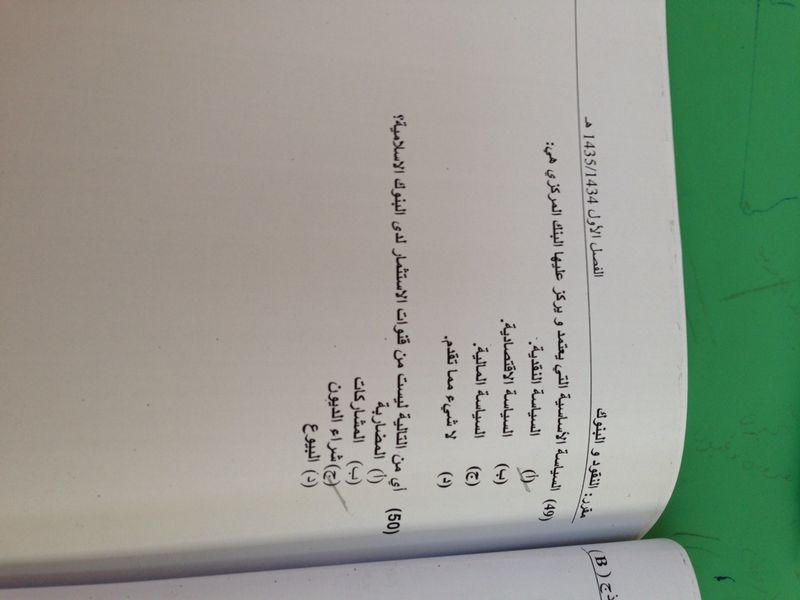 مقرر: النقود و البنوك
الفصل الأول 1435/1434 هـ
49) السياسة الأساسية التي يعتمد و يركز عليها البنك المركزي هي:
(أ) السياسة النقدية.
(ب) السياسة الاقتصادية.
(ج) السياسة المالية.
(د) لا شيء مما تقدم.
50) أي من التالية ليست من قنوات الاستثمار لدى البنوك الاسلامية؟
(أ) المضاربة
(ب) المشاركات
(ج) شراء الديون
(د) البيوع
(B)